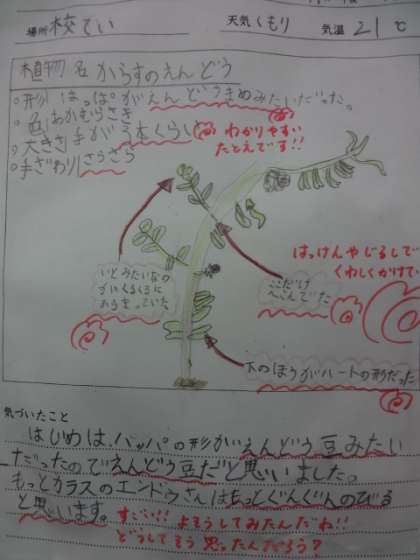 場所 校てい 天気 くもり 気温 21℃
植物名 からすのえんどう
○形 はっぱがえんどうまめみたいだった。
○色 あかむらさき
○大きさ 手が3本くらい
○手ざわり さらさら
わかりやすい
たとえです!!
はっけん やじるしで
くわしくかけて
いとみたいなの
が
くるくるに
ここだけ
へこんでた
下のほうがハートの形だった
気づいたこと
はじめは、ハッパの形がえんどう豆みたい
だったのでえんどう豆だと思いました。
もっとカラスのエンドウさんはもっとぐんぐんのびる
と思います。
すごい!!よそうしてみたんだね!!
どうしてそう思ったんだろう?